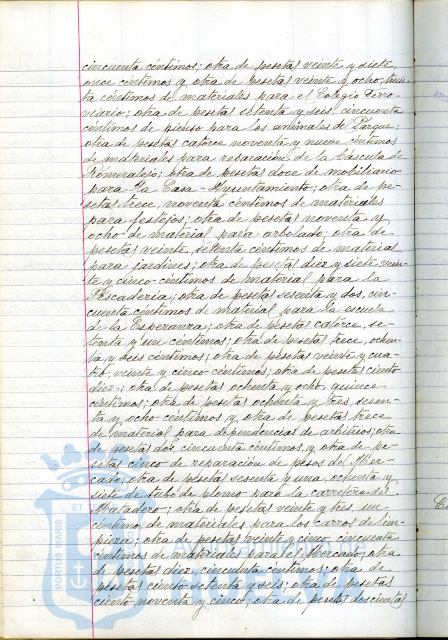 cincuenta céntimos; otra de pesetas veinte y siete,
once céntimos y otra de pesetas veinte y ocho, trein-
ta céntimos de materiales para el Colegio Ferro-
viario; otra de pesetas setenta y seis, cincuenta
céntimos de pienso para los animales del Parque;
otra de pesetas catorce noventa y nueve céntimos
de materiales para reparación de la báscula de
Romeralejo; otra de pesetas doce de mobiliario
para la Casa-Ayuntamiento; otra de pe-
setas trece, noventa céntimos de materiales
para festejos; otra de pesetas noventa y
ocho de material para arbolado; otra de
pesetas veinte, setenta céntimos de material
para jardines; otra de pesetas diez y siete vein-
te y cinco céntimos de material para la
Pescadería; otra de pesetas sesenta y dos, cin-
cuenta céntimos de material para la escuela
de la Esperanza; otra de pesetas catorce, se-
tenta y un céntimos; otra de pesetas trece, ochen-
ta y seis céntimos; otra de pesetas veinte y cua-
tro, veinte y cinco céntimos; otra de pesetas ciento
diez; otra de pesetas ochenta y ocho, quince
céntimos; otra de pesetas ochenta y tres, sesen-
ta y ocho céntimos y otra de pesetas trece
de material para dependencias de arbitrios; otra
de pesetas dos, cincuenta céntimos, y otra de pe-
setas cinco de reparación de pesos del Mer-
cado; otra de pesetas sesenta y una, ochenta y
siete de tubo de plomo para la carretera del
Matadero; otra de pesetas veinte y tres un
céntimo de materiales para los carros de lim-
pieza; otra de pesetas veinte y cinco, cincuenta
céntimos de materiales para el Mercado; otra
de pesetas diez, cincuenta céntimos; otra de
pesetas ciento setenta y seis; otra de pesetas
ciento noventa y cinco; otra de pesetas doscientas
PORTUS MARIS ET